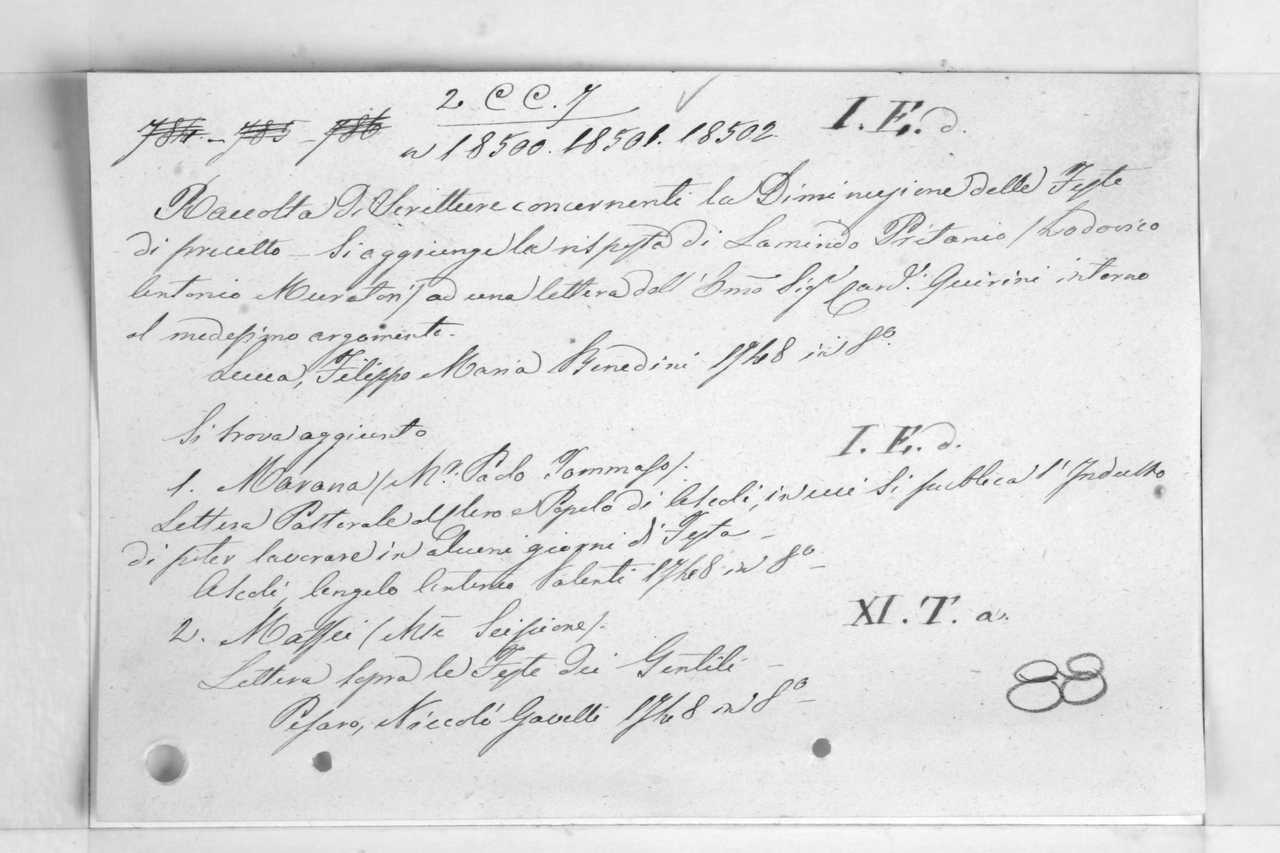 2 C C. 7
784 - 785 - 786 a 18500. 18501. 18502 I. E. d.
Raccolta di Scritture concernenti la Diminuzione delle Feste
di precetto - Si aggiunge la risposta di Lamindo Pritanio (Lodovico
Antonio Muratori) ad una lettera dell' Emo Sigr Card.l Quirini intorno
al medesimo argomento.
Lucca, Filippo Maria Benedini 1748 in 8o.
Si trova aggiunto
I. E. d.
1. Marana (Mr. Paolo Tommaso).
Lettera Pastorale al Clero e Popolo di Ascoli, in cui si publica l' Indulto
di poter lavorare in alcuni giorni di Festa -
Ascoli, Angelo Antonio Valenti 1748 in 8o -
2. Maffei (Mse Scipione).
XI. T. a.
Lettera sopra le Feste dei Gentili -
Pesaro, Niccolò Gavelli 1748 in 8o -
88